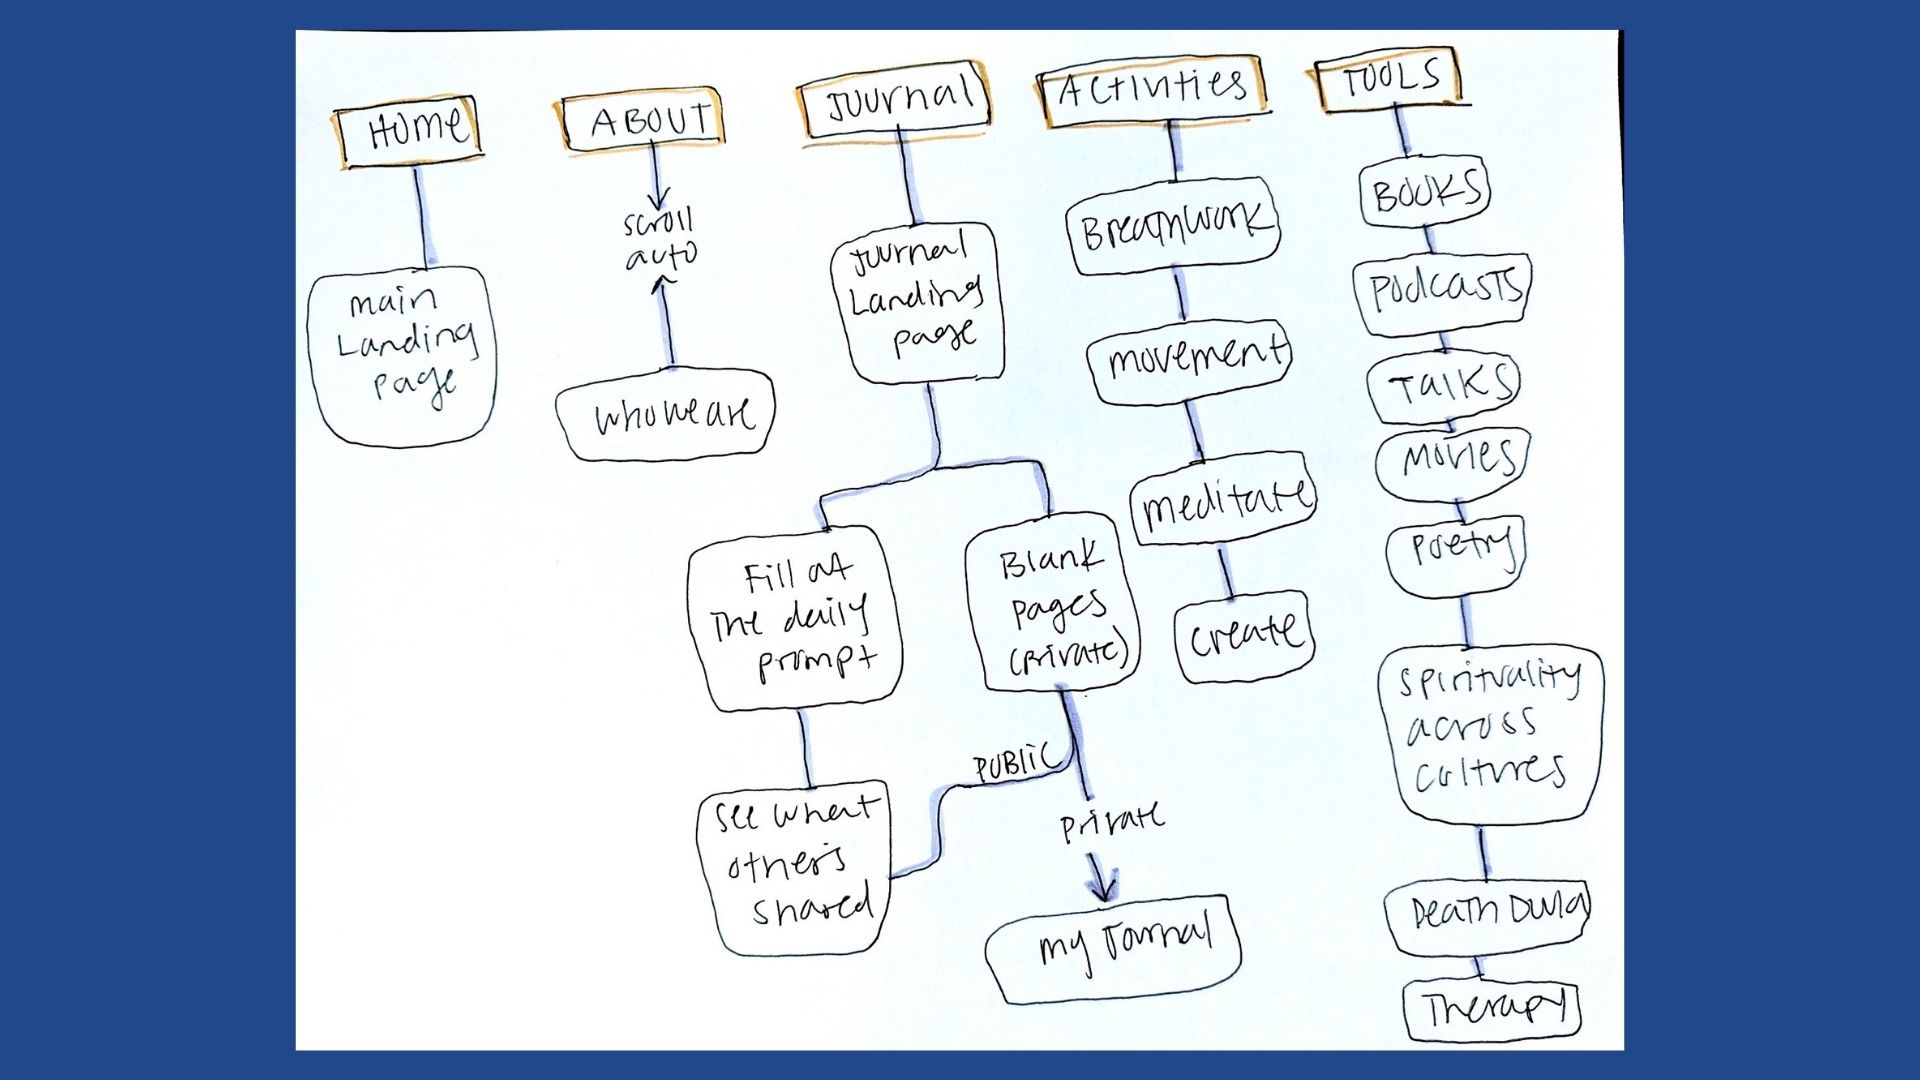 HOME
main
Landing
page
ABOUT
scroll
auto
who we are
Journal
Journal
Landing
page
Fill out
The daily
prompt
See what
other's
shared
Blank
pages
(private)
PUBLIC
private
my Journal
ACTIVITIES
BreathWork
movement
meditate
create
TOOLS
BOOKS
PODCASTS
TALKS
MOVIES
Poetry
Spirituality
across
cultures
Death Dula
Therapy